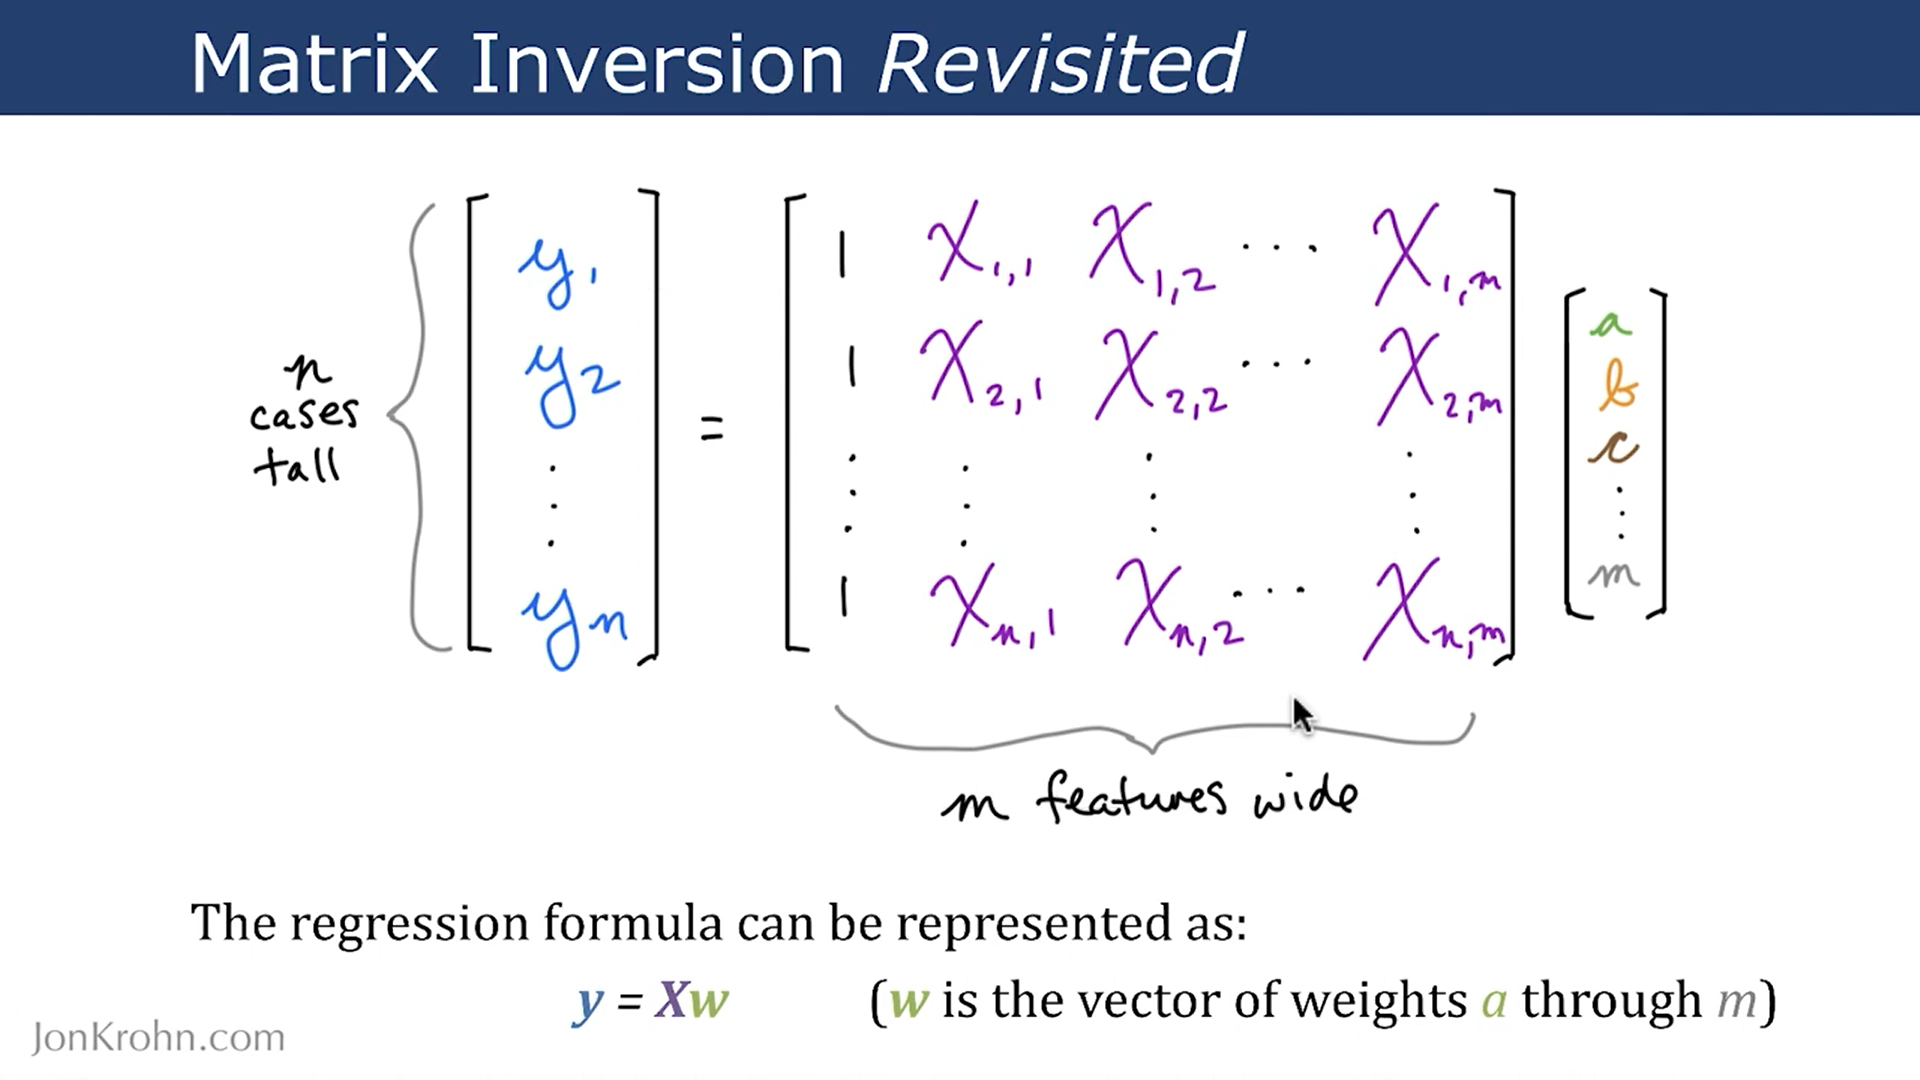 Matrix Inversion Revisited
n
cases
tall
[ y₁ ] = [ 1 X₁,₁ X₁,₂ ··· X₁,ₘ ] [ a ]
[ y₂ ] [ 1 X₂,₁ X₂,₂ ··· X₂,ₘ ] [ b ]
[ ⋮ ] [ ⋮ ⋮ ⋮ ⋮ ] [ c ]
[ yₙ ] [ 1 Xₙ,₁ Xₙ,₂ ··· Xₙ,ₘ ] [ ⋮ ]
[ m ]
m features wide
The regression formula can be represented as:
y = Xw (w is the vector of weights a through m)
JonKrohn.com